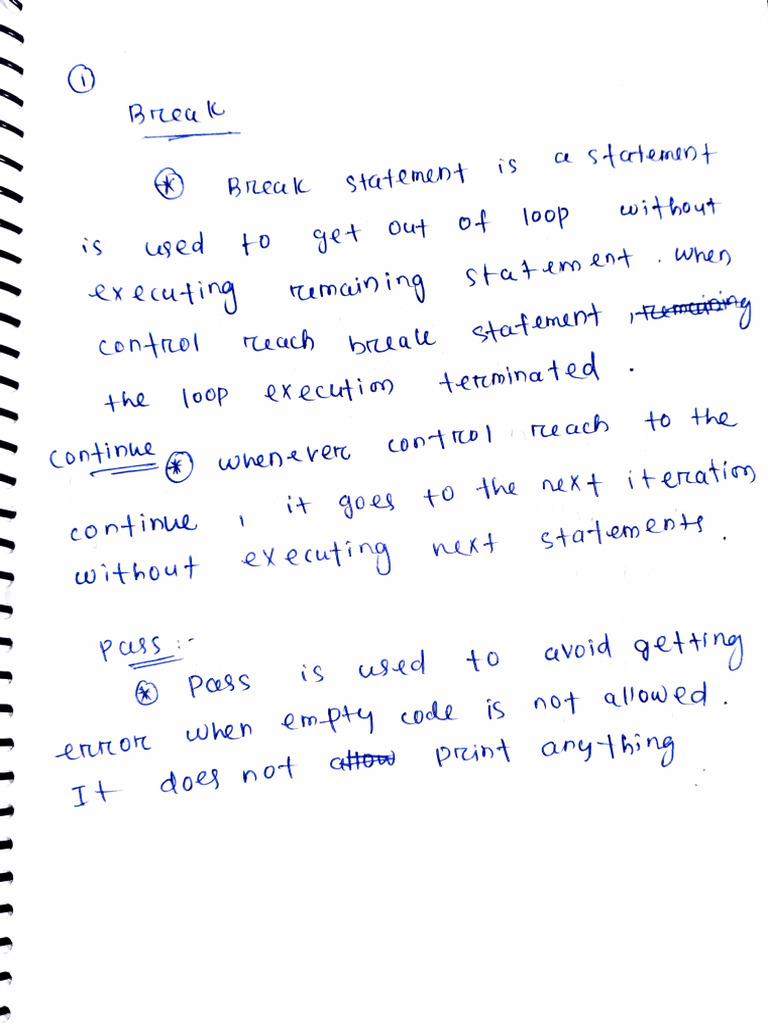 ①
Break
* Break statement is a statement
is used to get out of loop without
executing remaining statement. when
control reach break statement, remaining
the loop execution terminated.
continue * whenever control reach to the
continue, it goes to the next iteration
without executing next statements.
Pass:-
* Pass is used to avoid getting
error when empty code is not allowed.
It does not allow print anything